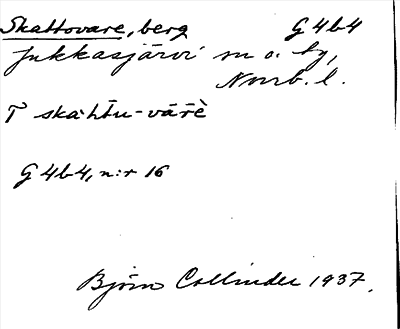 Skattovare, berg G4b4
Jukkasjärvi sn o. by,
Norrb. l.
T ska:htu-vařè
G4b4, n:r 16
Björn Collinder 1937.